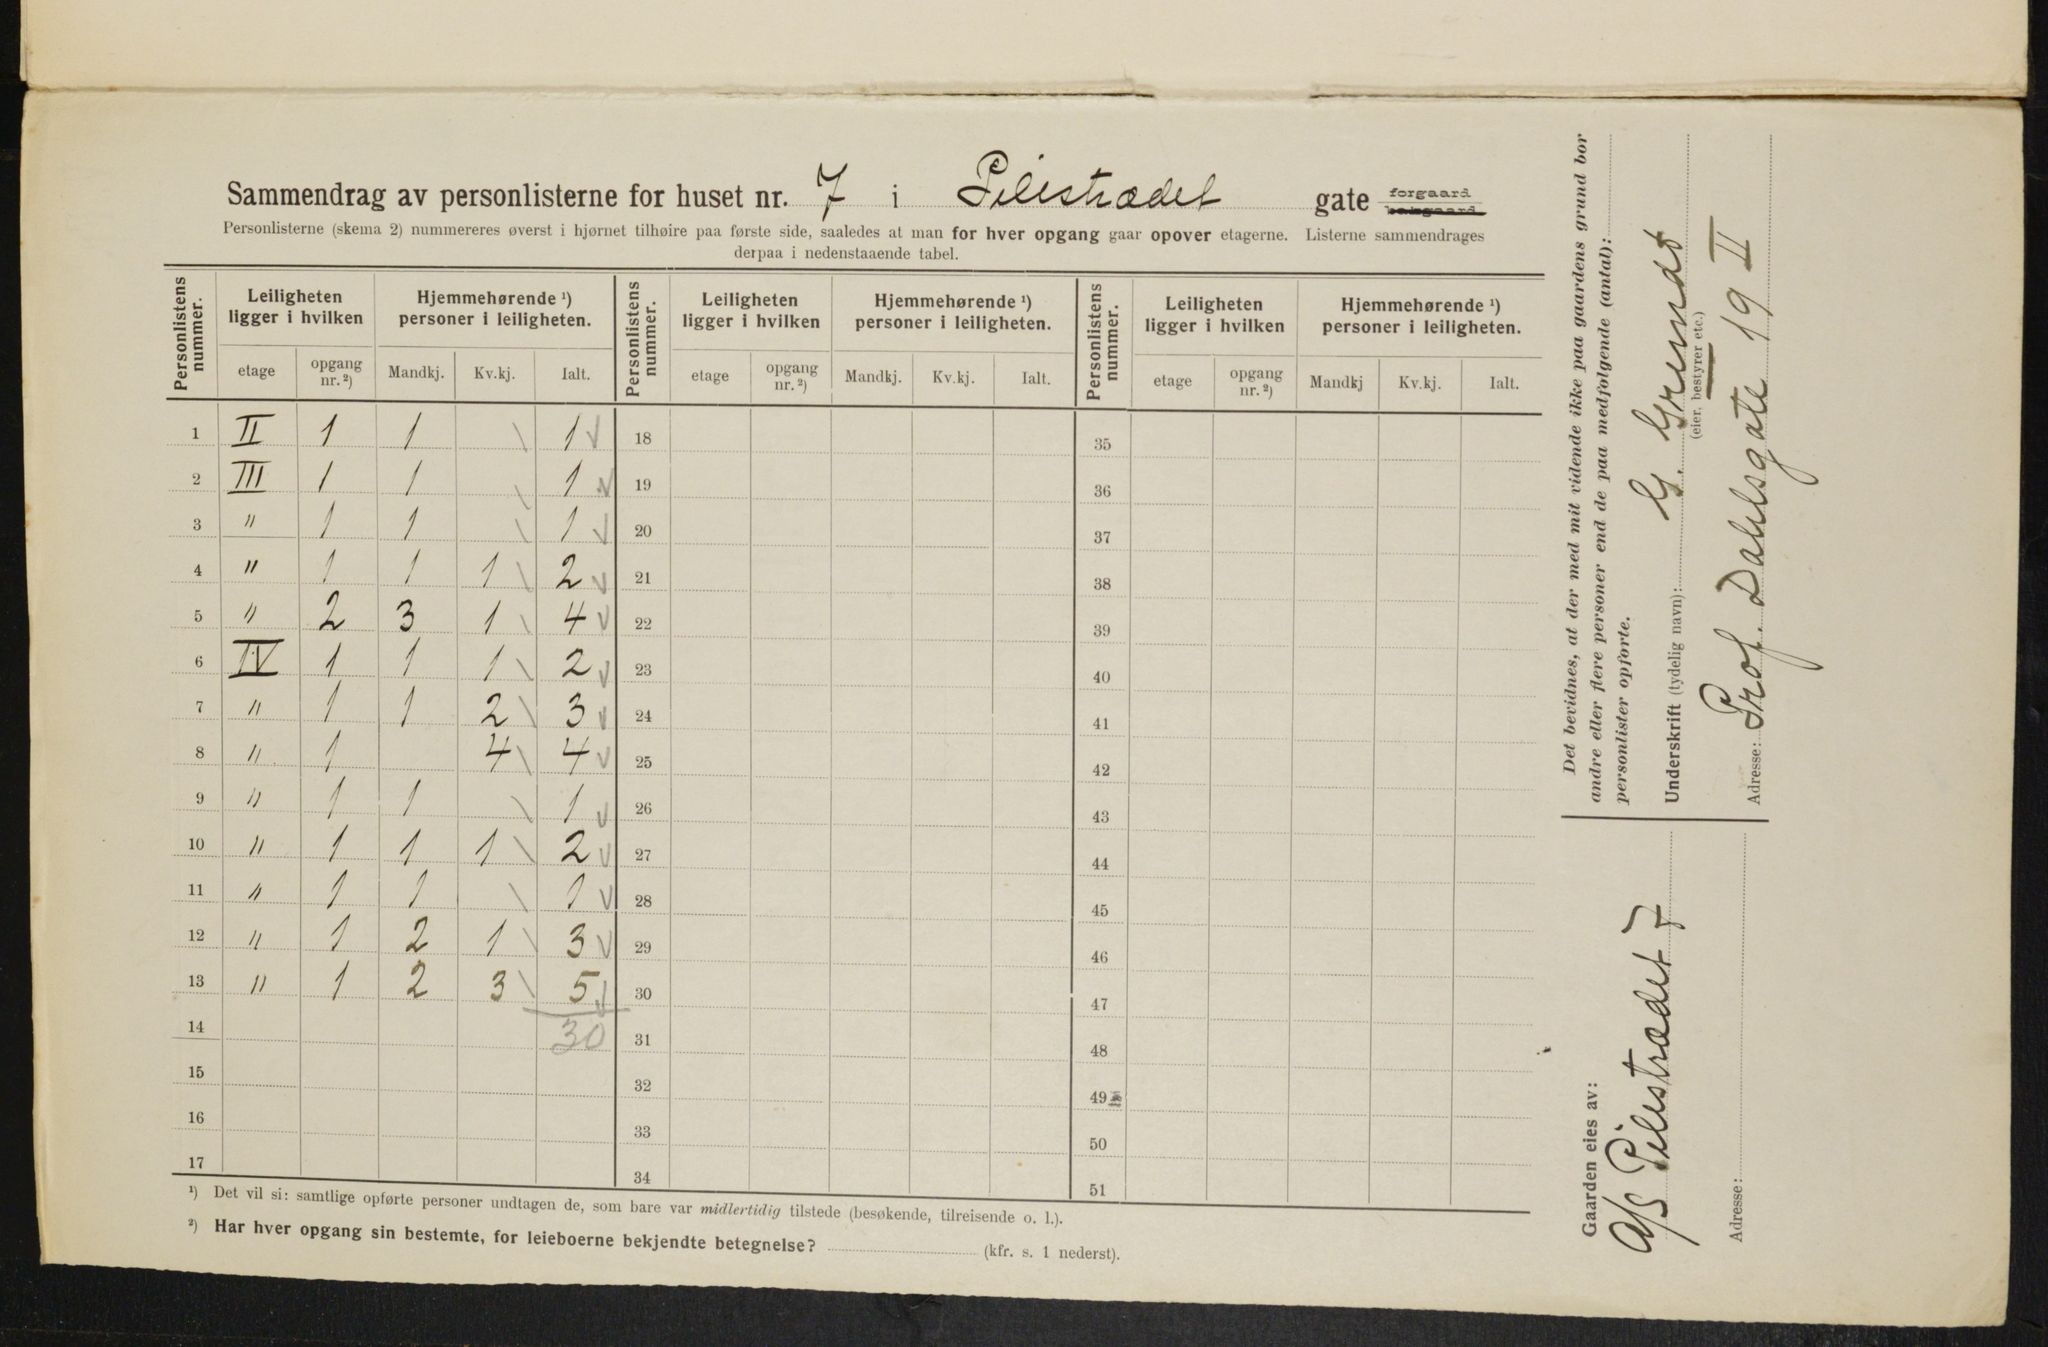 Sammendrag av personlisterne for huset nr. 7 i Pilestrædet gate forgaard bakgaard
Personlisterne (skema 2) nummereres øverst i hjørnet tilhøire paa første side, saaledes at man for hver opgang gaar opover etagerne. Listerne sammendrages
derpaa i nedenstaaende tabel.
Personlistens nummer. Leiligheten ligger i hvilken Hjemmehørende ¹) personer i leiligheten. Personlistens nummer. Leiligheten ligger i hvilken Hjemmehørende ¹) personer i leiligheten. Personlistens nummer. Leiligheten ligger i hvilken Hjemmehørende ¹) personer i leiligheten.
etage opgang nr. ²) Mandkj. Kv.kj. Ialt. etage opgang nr. ²) Mandkj. Kv.kj. Ialt. etage opgang nr. ²) Mandkj Kv.kj. Ialt.
1 II 1 1 1 18 35
2 III 1 1 1 19 36
3 " 1 1 1 20 37
4 " 1 1 1 2 21 38
5 " 2 3 1 4 22 39
6 IV 1 1 1 2 23 40
7 " 1 1 2 3 24 41
8 " 1 4 4 25 42
9 " 1 1 1 26 43
10 " 1 1 1 2 27 44
11 " 1 1 1 28 45
12 " 1 2 1 3 29 46
13 " 1 2 3 5 30 47
14 30 31 48
15 32 49
16 33 50
17 34 51
¹) Det vil si: samtlige opførte personer undtagen de, som bare var midlertidig tilstede (besøkende, tilreisende o. l.).
²) Har hver opgang sin bestemte, for leieboerne bekjendte betegnelse? (kfr. s. 1 nederst).
Det bevidnes, at der med mit vidende ikke paa gaardens grund bor
andre eller flere personer end de paa medfølgende (antal):
personlister opførte.
Underskrift (tydelig navn): G. Grundt
(eier, bestyrer etc.)
Adresse: Prof. Dahlsgate 19 II
Gaarden eies av:
A/S Pilestrædet 7
Adresse: